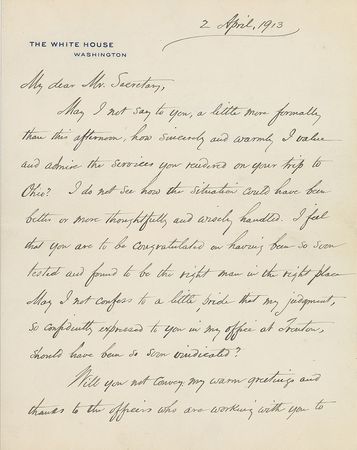 2 April, 1913
THE WHITE HOUSE
WASHINGTON
My dear Mr. Secretary,
May I not say to you, a little more formally
than this afternoon, how sincerely and warmly I value
and admire the services you rendered on your trip to
Ohio? I do not see how the situation could have been
better or more thoughtfully and wisely handled. I feel
that you are to be congratulated on having been so soon
tested and found to be the right man in the right place
May I not confess to a little pride that my judgment,
so confidently expressed to you in my office at Trenton,
should have been so soon vindicated?
Will you not convey my warm greetings and
thanks to the officers who are working with you to